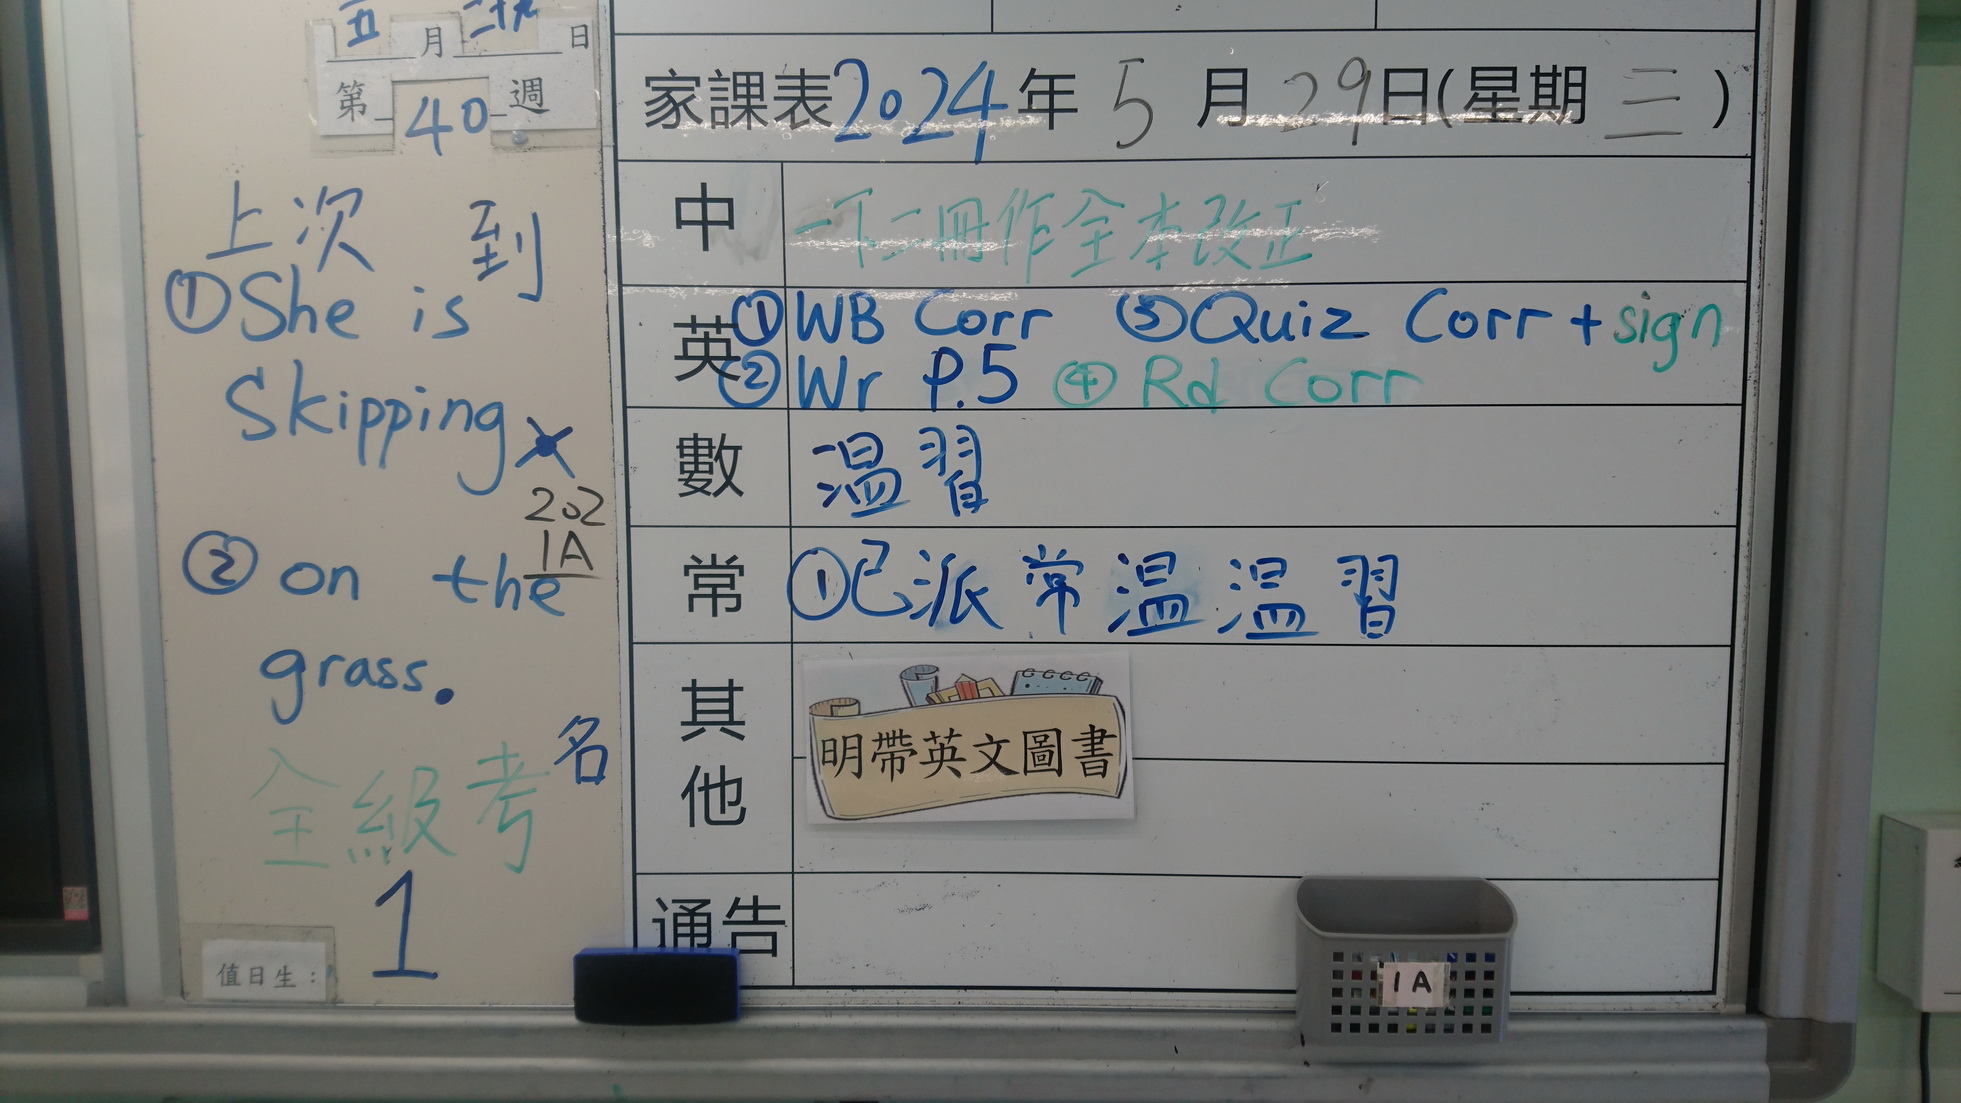 五月二十九日
第40週
上次 到
①She is
Skipping
202
1A
② on the
grass.
全級考名
1
值日生：
家課表2024年5月29日(星期三)
中 一下二冊作全本改正
英 ①WB Corr ③Quiz Corr + sign
②Wr P.5 ④Rd Corr
數 温習
常 ①已派常温温習
其他 明帶英文圖書
通告
1A